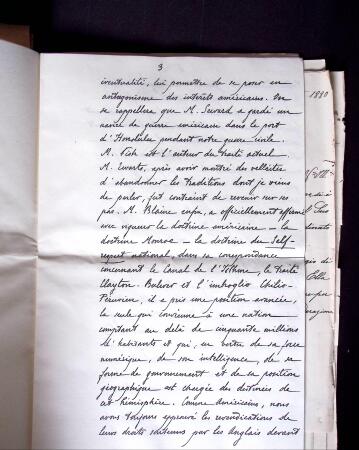 3
éventualité, lui permettre de se poser en
antagonisme des intérêts américains. On
se rappellera que M. Seward a gardé un
navire de guerre américain dans le port
d'Honolulu pendant notre guerre civile.
M. Fish est l'auteur du traité actuel
M. Evarts, après avoir montré des velléités
d'abandonner les traditions dont je viens
de parler, fut contraint de revenir sur ses
pas. M. Blaine enfin, a officiellement affirmé
avec vigueur la doctrine américaine – la
doctrine Monroe – la doctrine du Self-
respect national, dans sa correspondance
concernant le Canal de l'Isthme, le Traité
Clayton-Bulwer et l'imbroglio Chilio-
Péruvien, il a pris une position avancée,
la seule qui convienne à une nation
comptant au delà de cinquante millions
d'habitants et qui, en vertu de sa force
numérique, de son intelligence, de sa
forme de gouvernement et de sa position
géographique est chargée des destinées de
cet hémisphère. Comme américains, nous
avons toujours approuvé les revendications de
leurs droits soutenus par les Anglais devant
1880